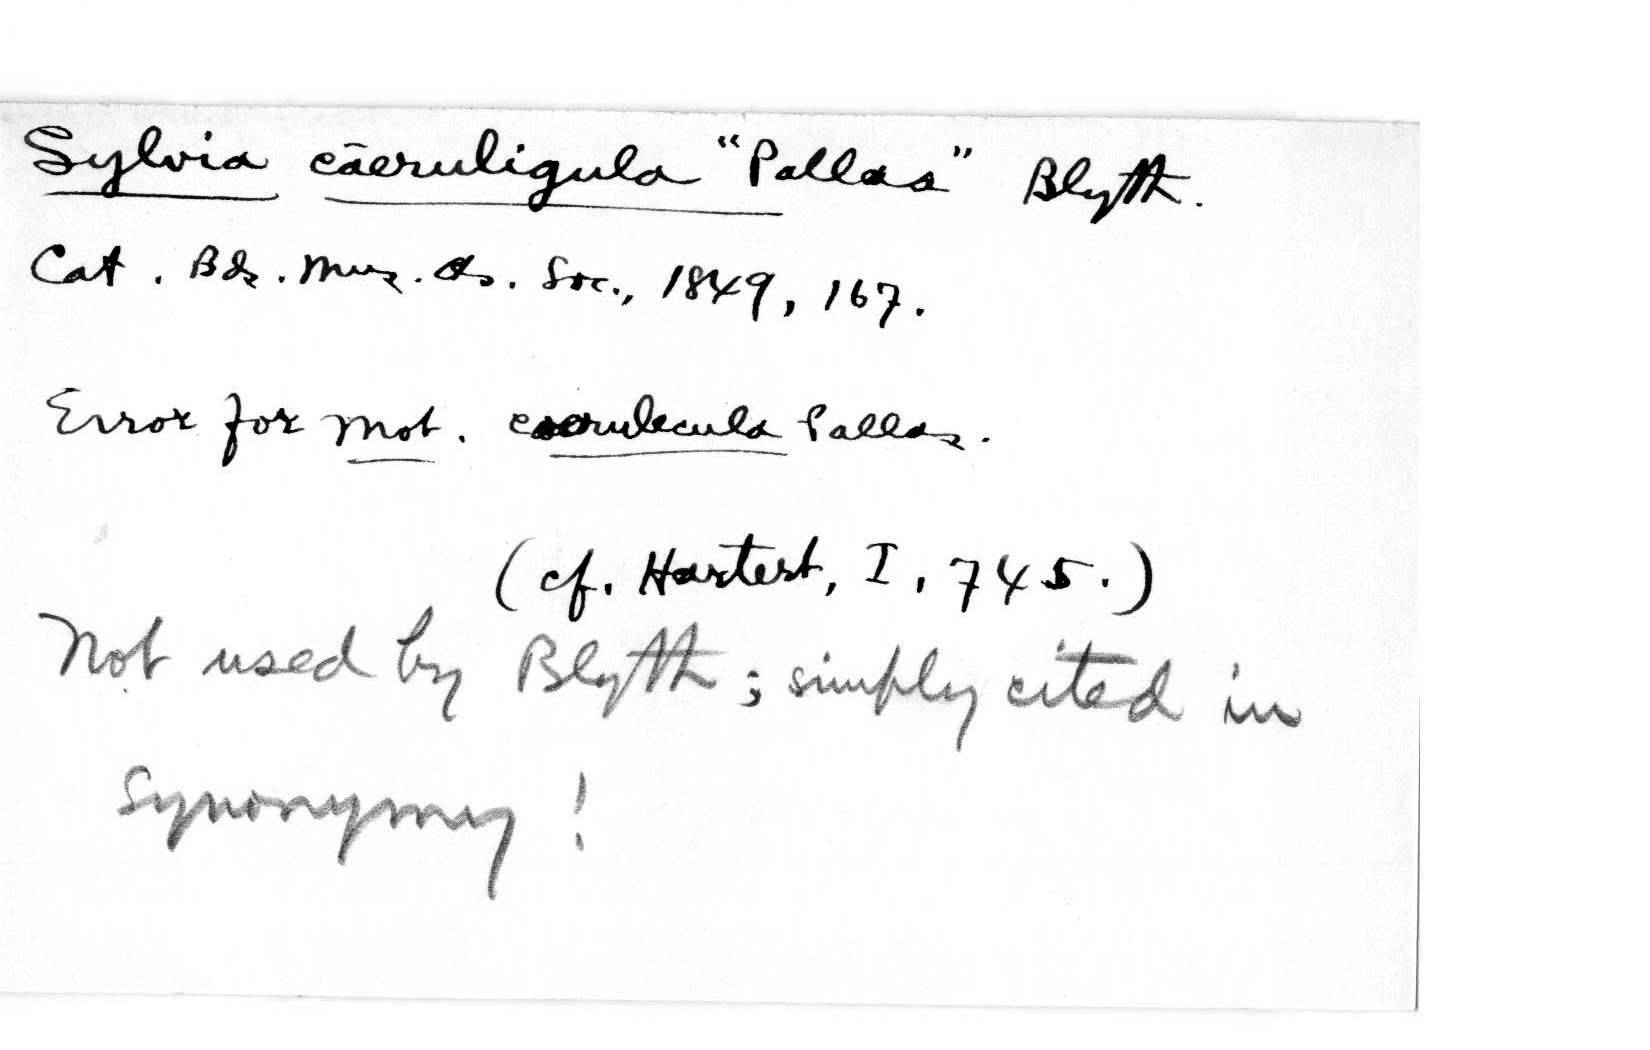 Sylvia cāeruligula "Pallas" Blyth.
Cat. Bds. Mus. As. Soc., 1849, 167.
Error for Mot. caerulecula Pallas.
(cf. Hartert, I, 745.)
Not used by Blyth; simply cited in
synonymy!